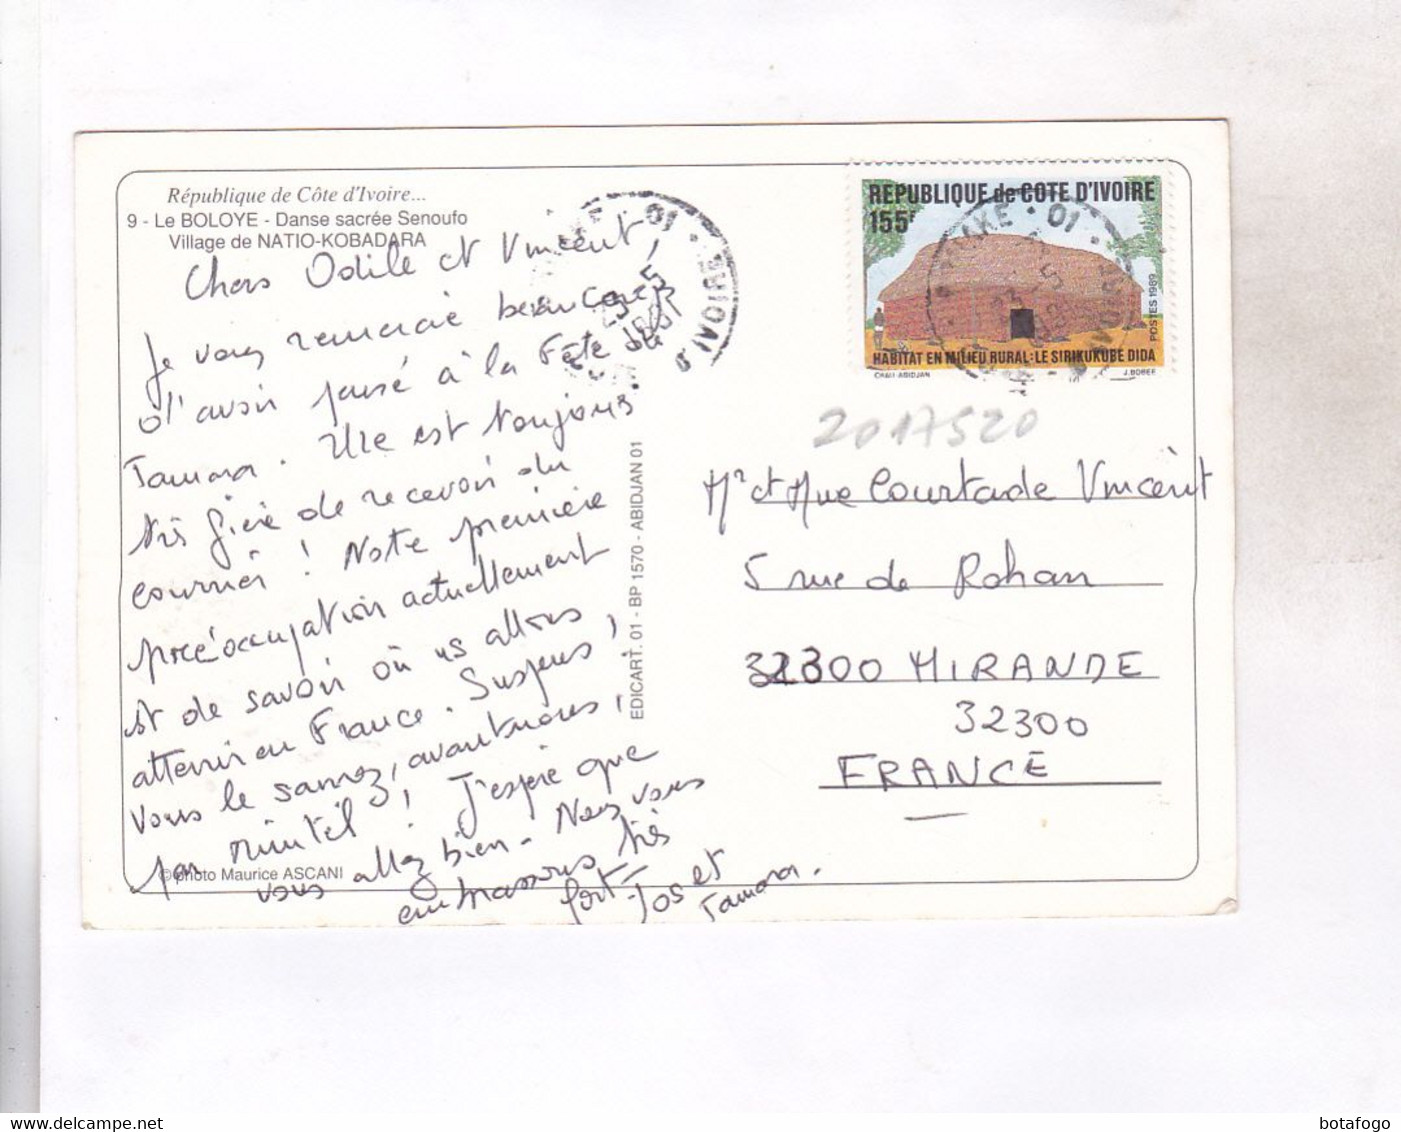 République de Côte d'Ivoire...
9 - Le BOLOYE - Danse sacrée Senoufo
Village de NATIO-KOBADARA
Chers Odile et Vincent,
Je vous remercie beaucoup
d'avoir pensé à la Fête de
Tamara. Elle est toujours
très fière de recevoir du
courrier ! Notre première
préoccupation actuellement
st de savoir où ns allons
atterrir en France. Suspens,
Vous le saurez, avant nous,
par minitel ! J'espère que
vous allez bien - Nous vous
embrassons très
fort - Jos et
Tamara.
© photo Maurice ASCANI
EDICART. 01 - BP 1570 - ABIDJAN 01
REPUBLIQUE de COTE D'IVOIRE
155F
POSTES 1989
HABITAT EN MILIEU RURAL: LE SIRIKUKUBE DIDA
J. BOBEE
BOUAKE • 01
23 - 5
IVOIRE
2017520
Mr et Mme Courtade Vincent
5 rue de Rohan
32300 MIRANDE
32300
FRANCE
botafogo